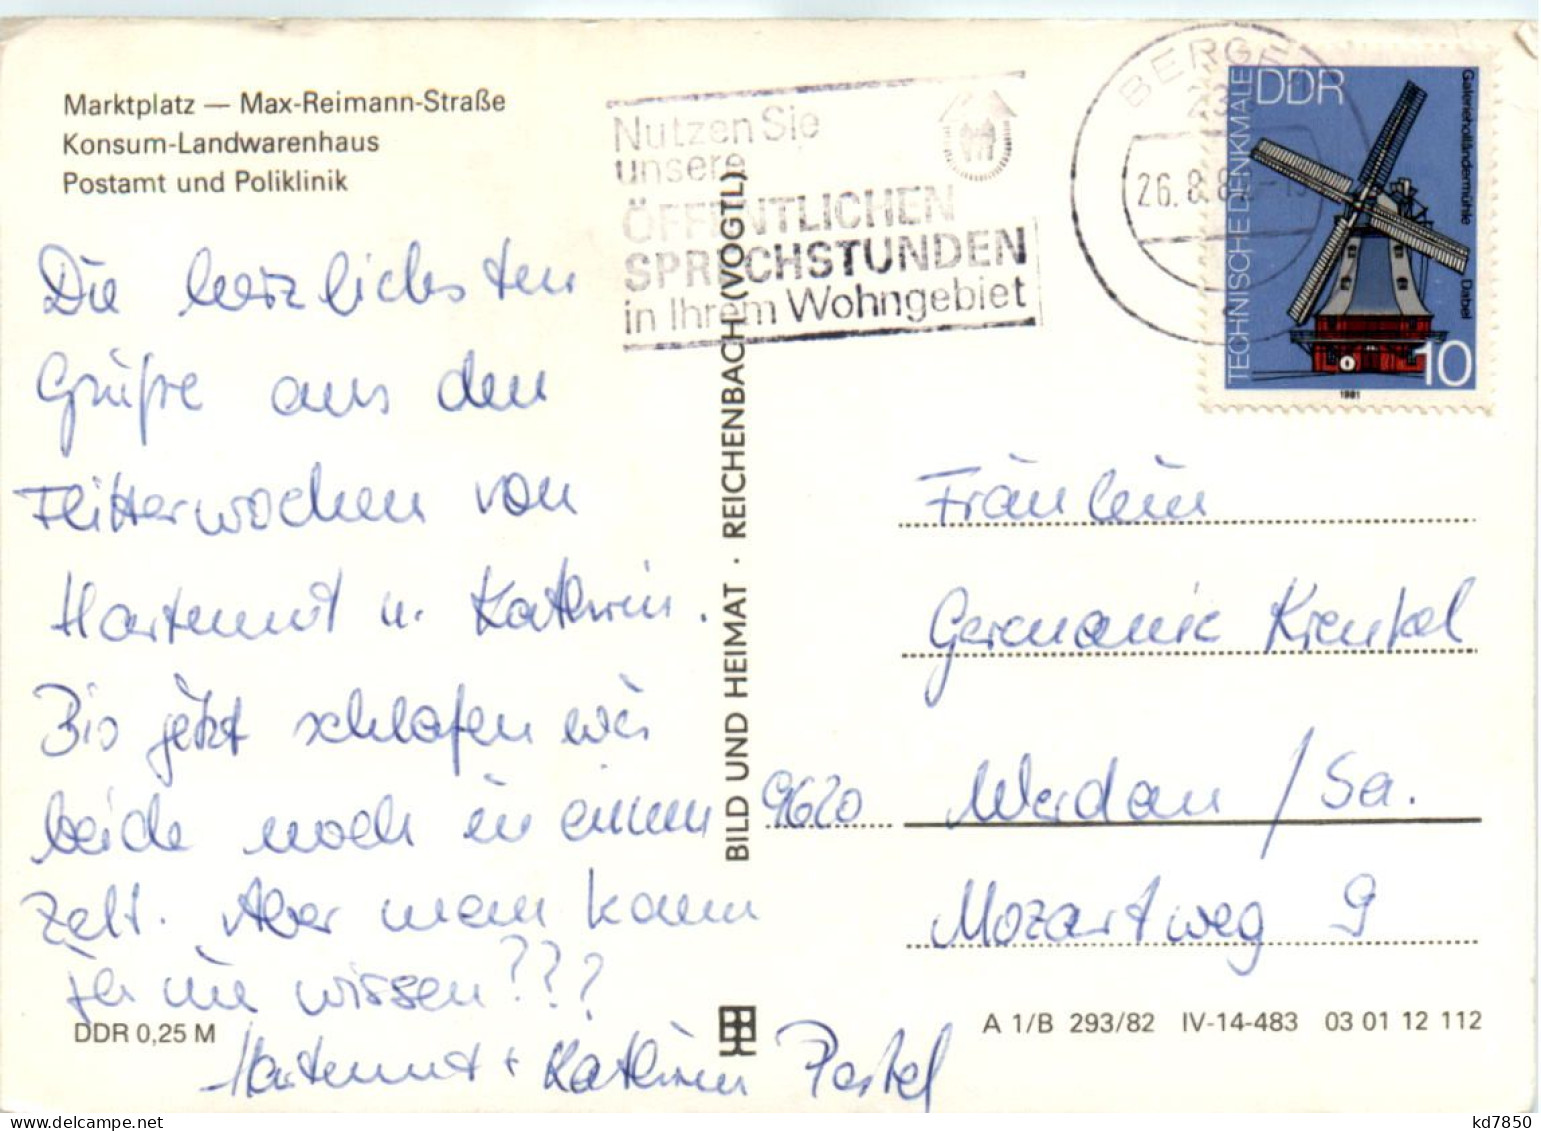 Marktplatz — Max-Reimann-Straße
Konsum-Landwarenhaus
Postamt und Poliklinik
Die herzlichsten
Grüße aus den
Flitterwochen von
Hartmut u. Kathrin.
Bis jetzt schlafen wir
beide noch in einem
Zelt. Aber man kann
ja nie wissen???
Hartmut + Kathrin
DDR 0,25 M
BILD UND HEIMAT · REICHENBACH (VOGTL)
Nutzen Sie
unsere
ÖFFENTLICHEN
SPRECHSTUNDEN
in Ihrem Wohngebiet
BERGEN
26.8.8
DDR
TECHNISCHE DENKMALE
Galerieholländermühle Dabel
10
1981
Fräulein
Germanie Krenkel
9620 Werdau / Sa.
Mozartweg 9
A 1/B 293/82 IV-14-483 03 01 12 112
kd7850